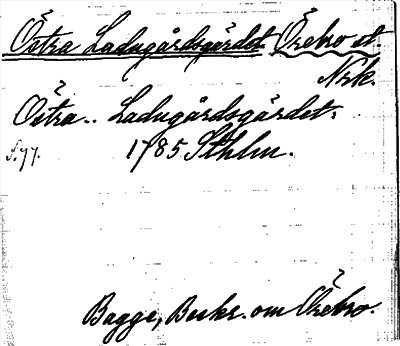 Östra Ladugårdsgärdet. Örebro st.
Nrk.
Östra.. Ladugårdsgärdet.
S.77. 1785 Sthlm.
Bagge, Beskr. om Örebro.